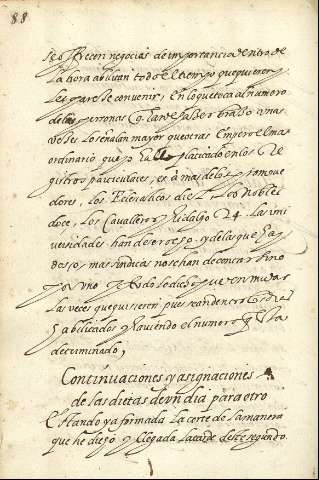 88
se offrecen negocios de importancia dentro de
la hora abituan todo el tiempo que quieren y
les pareſe convenir, En lo que toca al numero
delas personas q̃ lan de saber braſſo unas
vezes lo señalan mayor que otras Empero el mas
ordinario que yo hallo platicado en los Re
gistros particulares, es á mas delos promove
dores, los Eclesiasticos diez los nobles
doce, los Cavalleros y hidalgos 24. las uni
versidades han de ser ocho, y delas que hay
dos o mas sindicos no se han de contar sino
por uno
las veces que quisieren
habilitados y haviendo el numero
determinado,
Continuaciones y asignaciones
de las dietas de vn dia para otro
Estando ya formada la corte de la manera
que he dicho y llegada la tarde deste segundo